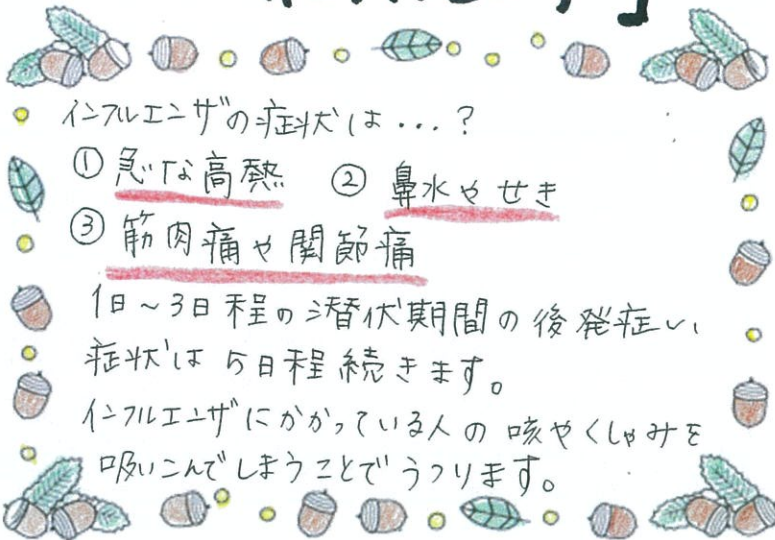 インフルエンザの症状は・・・?
① 急な高熱 ② 鼻水やせき
③ 筋肉痛や関節痛
1日~3日程の潜伏期間の後発症し、
症状は5日程続きます。
インフルエンザにかかっている人の咳やくしゃみを
吸いこんでしまうことでうつります。